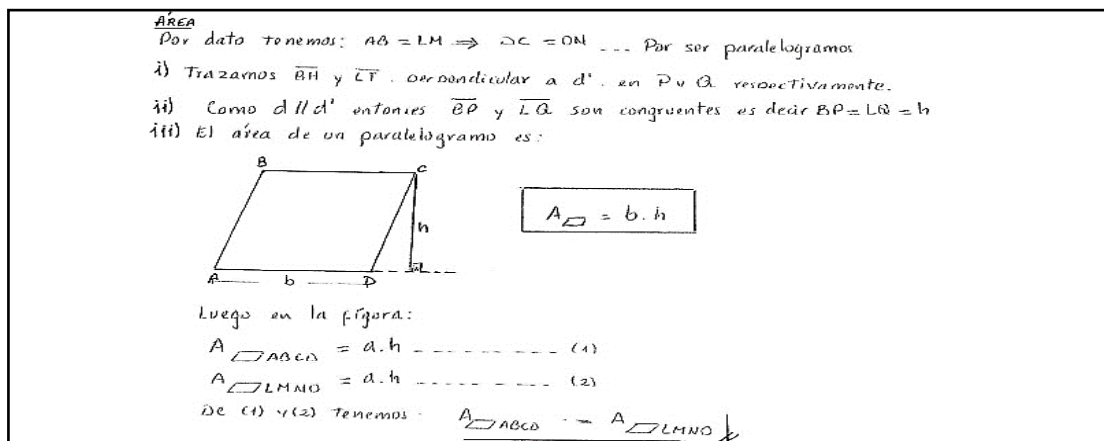 ÁREA
Por dato tenemos: AB = LM ⇒ DC = ON ... Por ser paralelogramos
i) Trazamos BH y LT perpendicular a d' en P y Q respectivamente.
ii) Como d // d' entonces BP y LQ son congruentes es decir BP = LQ = h
iii) El área de un paralelogramo es:
B C
h
A▱ = b.h
A b D
Luego en la figura:
A▱ABCD = a.h ---------- (1)
A▱LMNO = a.h ---------- (2)
De (1) y (2) Tenemos A▱ABCD = A▱LMNO